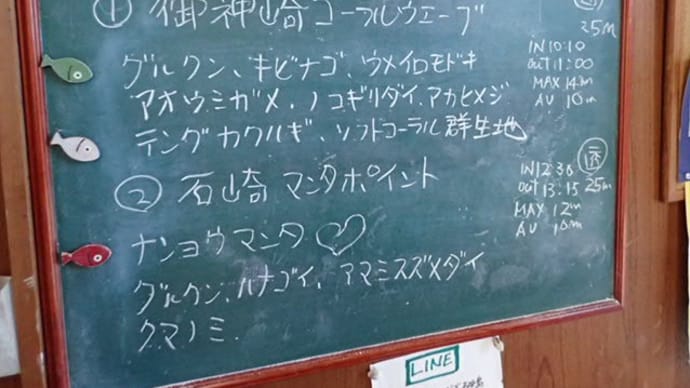 ① 御神崎コーラルウェーブ
25m
IN 10:10
OUT 11:00
MAX 14m
AV 10m
グルクン、キビナゴ、ウメイロモドキ
アオウミガメ、ノコギリダイ、アカヒメジ
テングカクハギ、ソフトコーラル群生地
② 石崎 マンタポイント
透
25m
IN 12:30
OUT 13:15
MAX 12m
AV 10m
ナンヨウマンタ ♡
グルクン、ハナゴイ、アマミスズメダイ
クマノミ
LINE